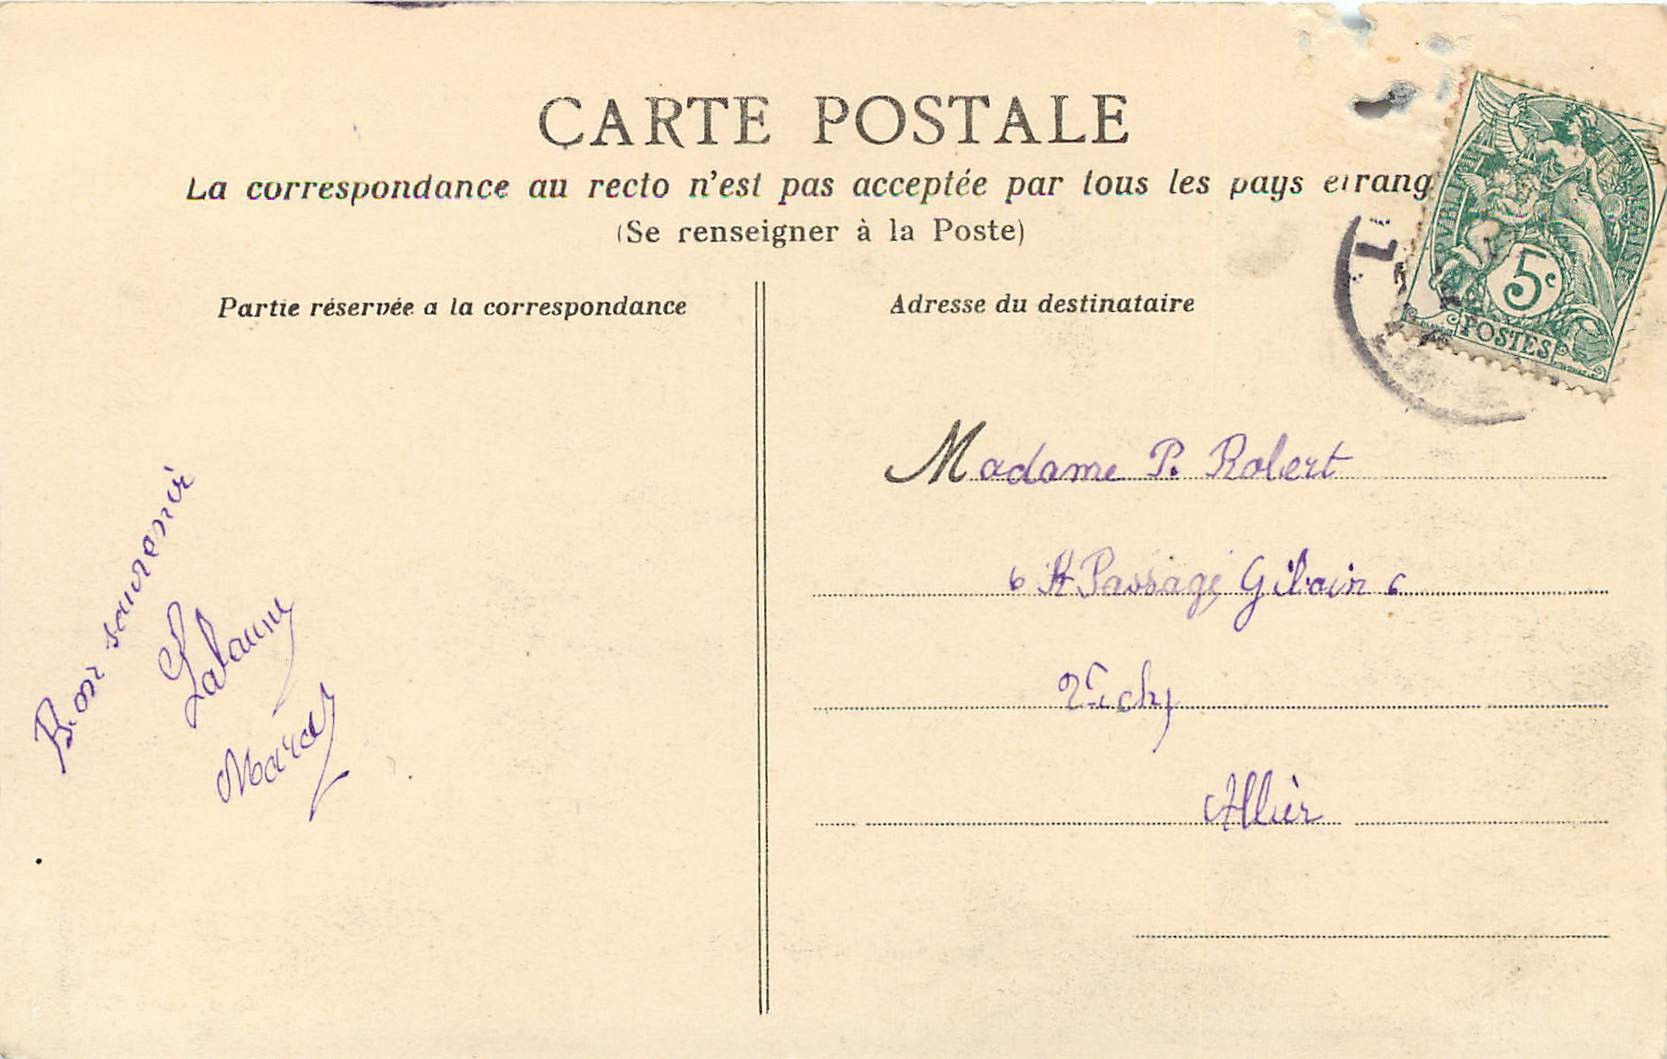 CARTE POSTALE
La correspondance au recto n'est pas acceptée par tous les pays etrang
(Se renseigner à la Poste)
Partie réservée a la correspondance
Bon souvenir
Adresse du destinataire
Madame P. Robert
6 Passage Giloin 6
Vichy
Allier
5c
POSTES